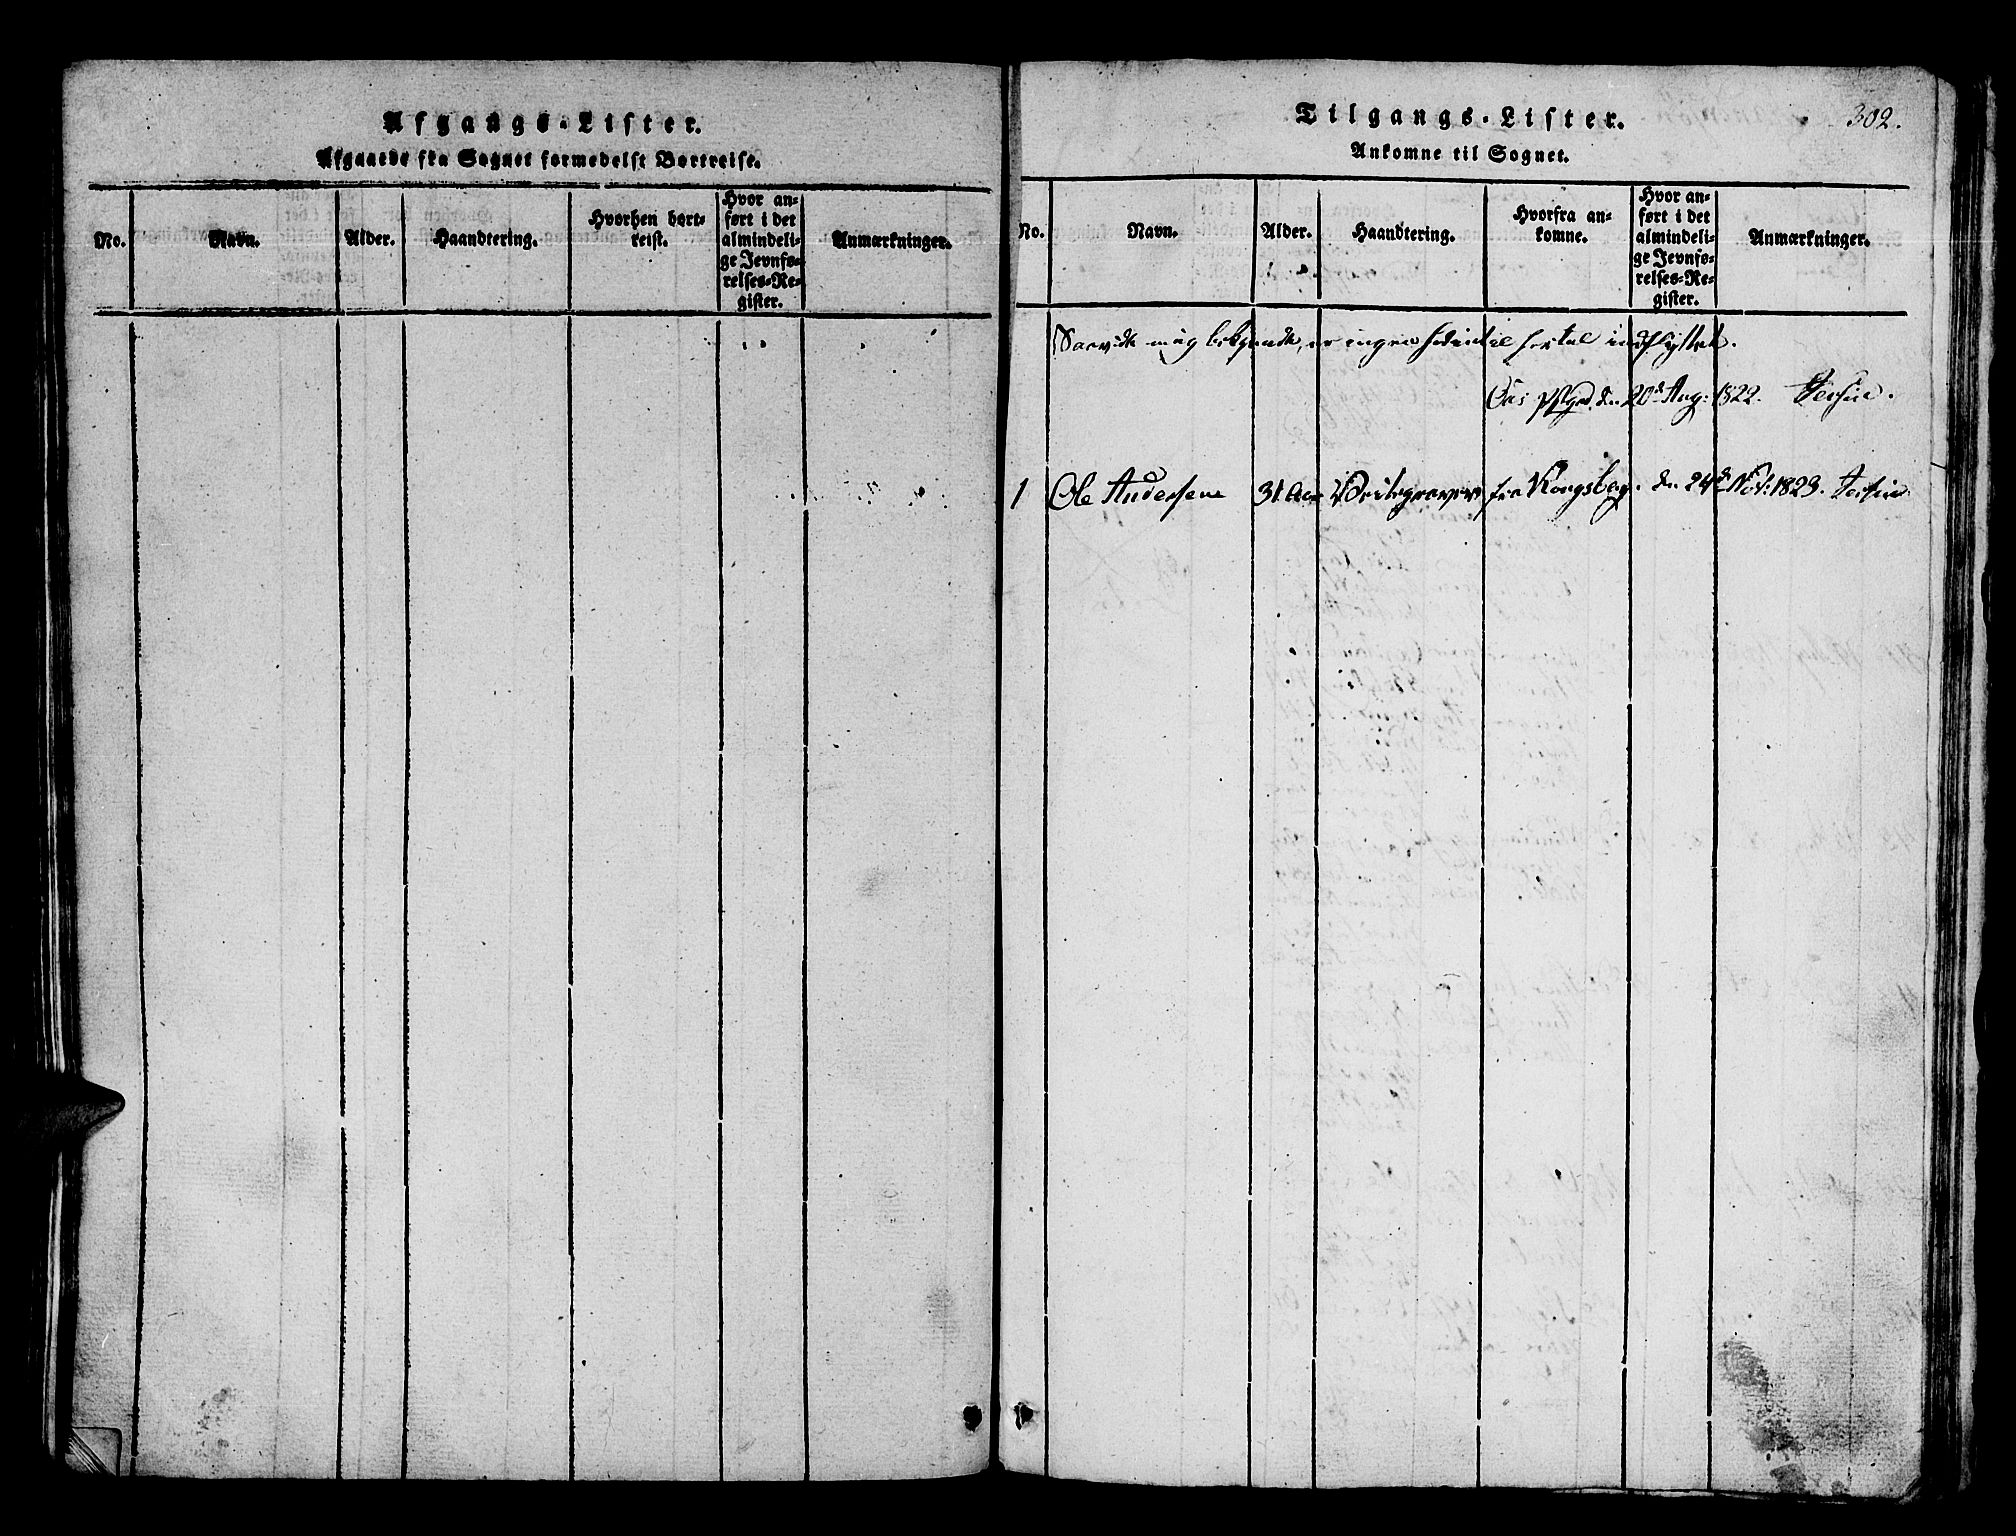 Afgangs-Lister.
Afgaaede fra Sognet formedelst Bortreise.
No.
Navn.
Alder.
Haandtering.
Hvorhen bort-
reist.
Hvor an-
ført i det
almindeli-
ge Jevnfø-
relses-Re-
gister.
Anmærkninger.
302.
Tilgangs-Lister.
Ankomne til Sognet.
No.
Navn.
Alder.
Haandtering.
Hvorfra an-
komne.
Hvor an-
ført i det
almindeli-
ge Jevnfø-
relses-Re-
gister.
Anmærkninger.
Saavidt mig bekjendt, er ingen hertil indflyttet.
den 20d Aug: 1822.
1 Ole Andersen 31 Aar fra Kongsberg. den 24d Nov: 1823.